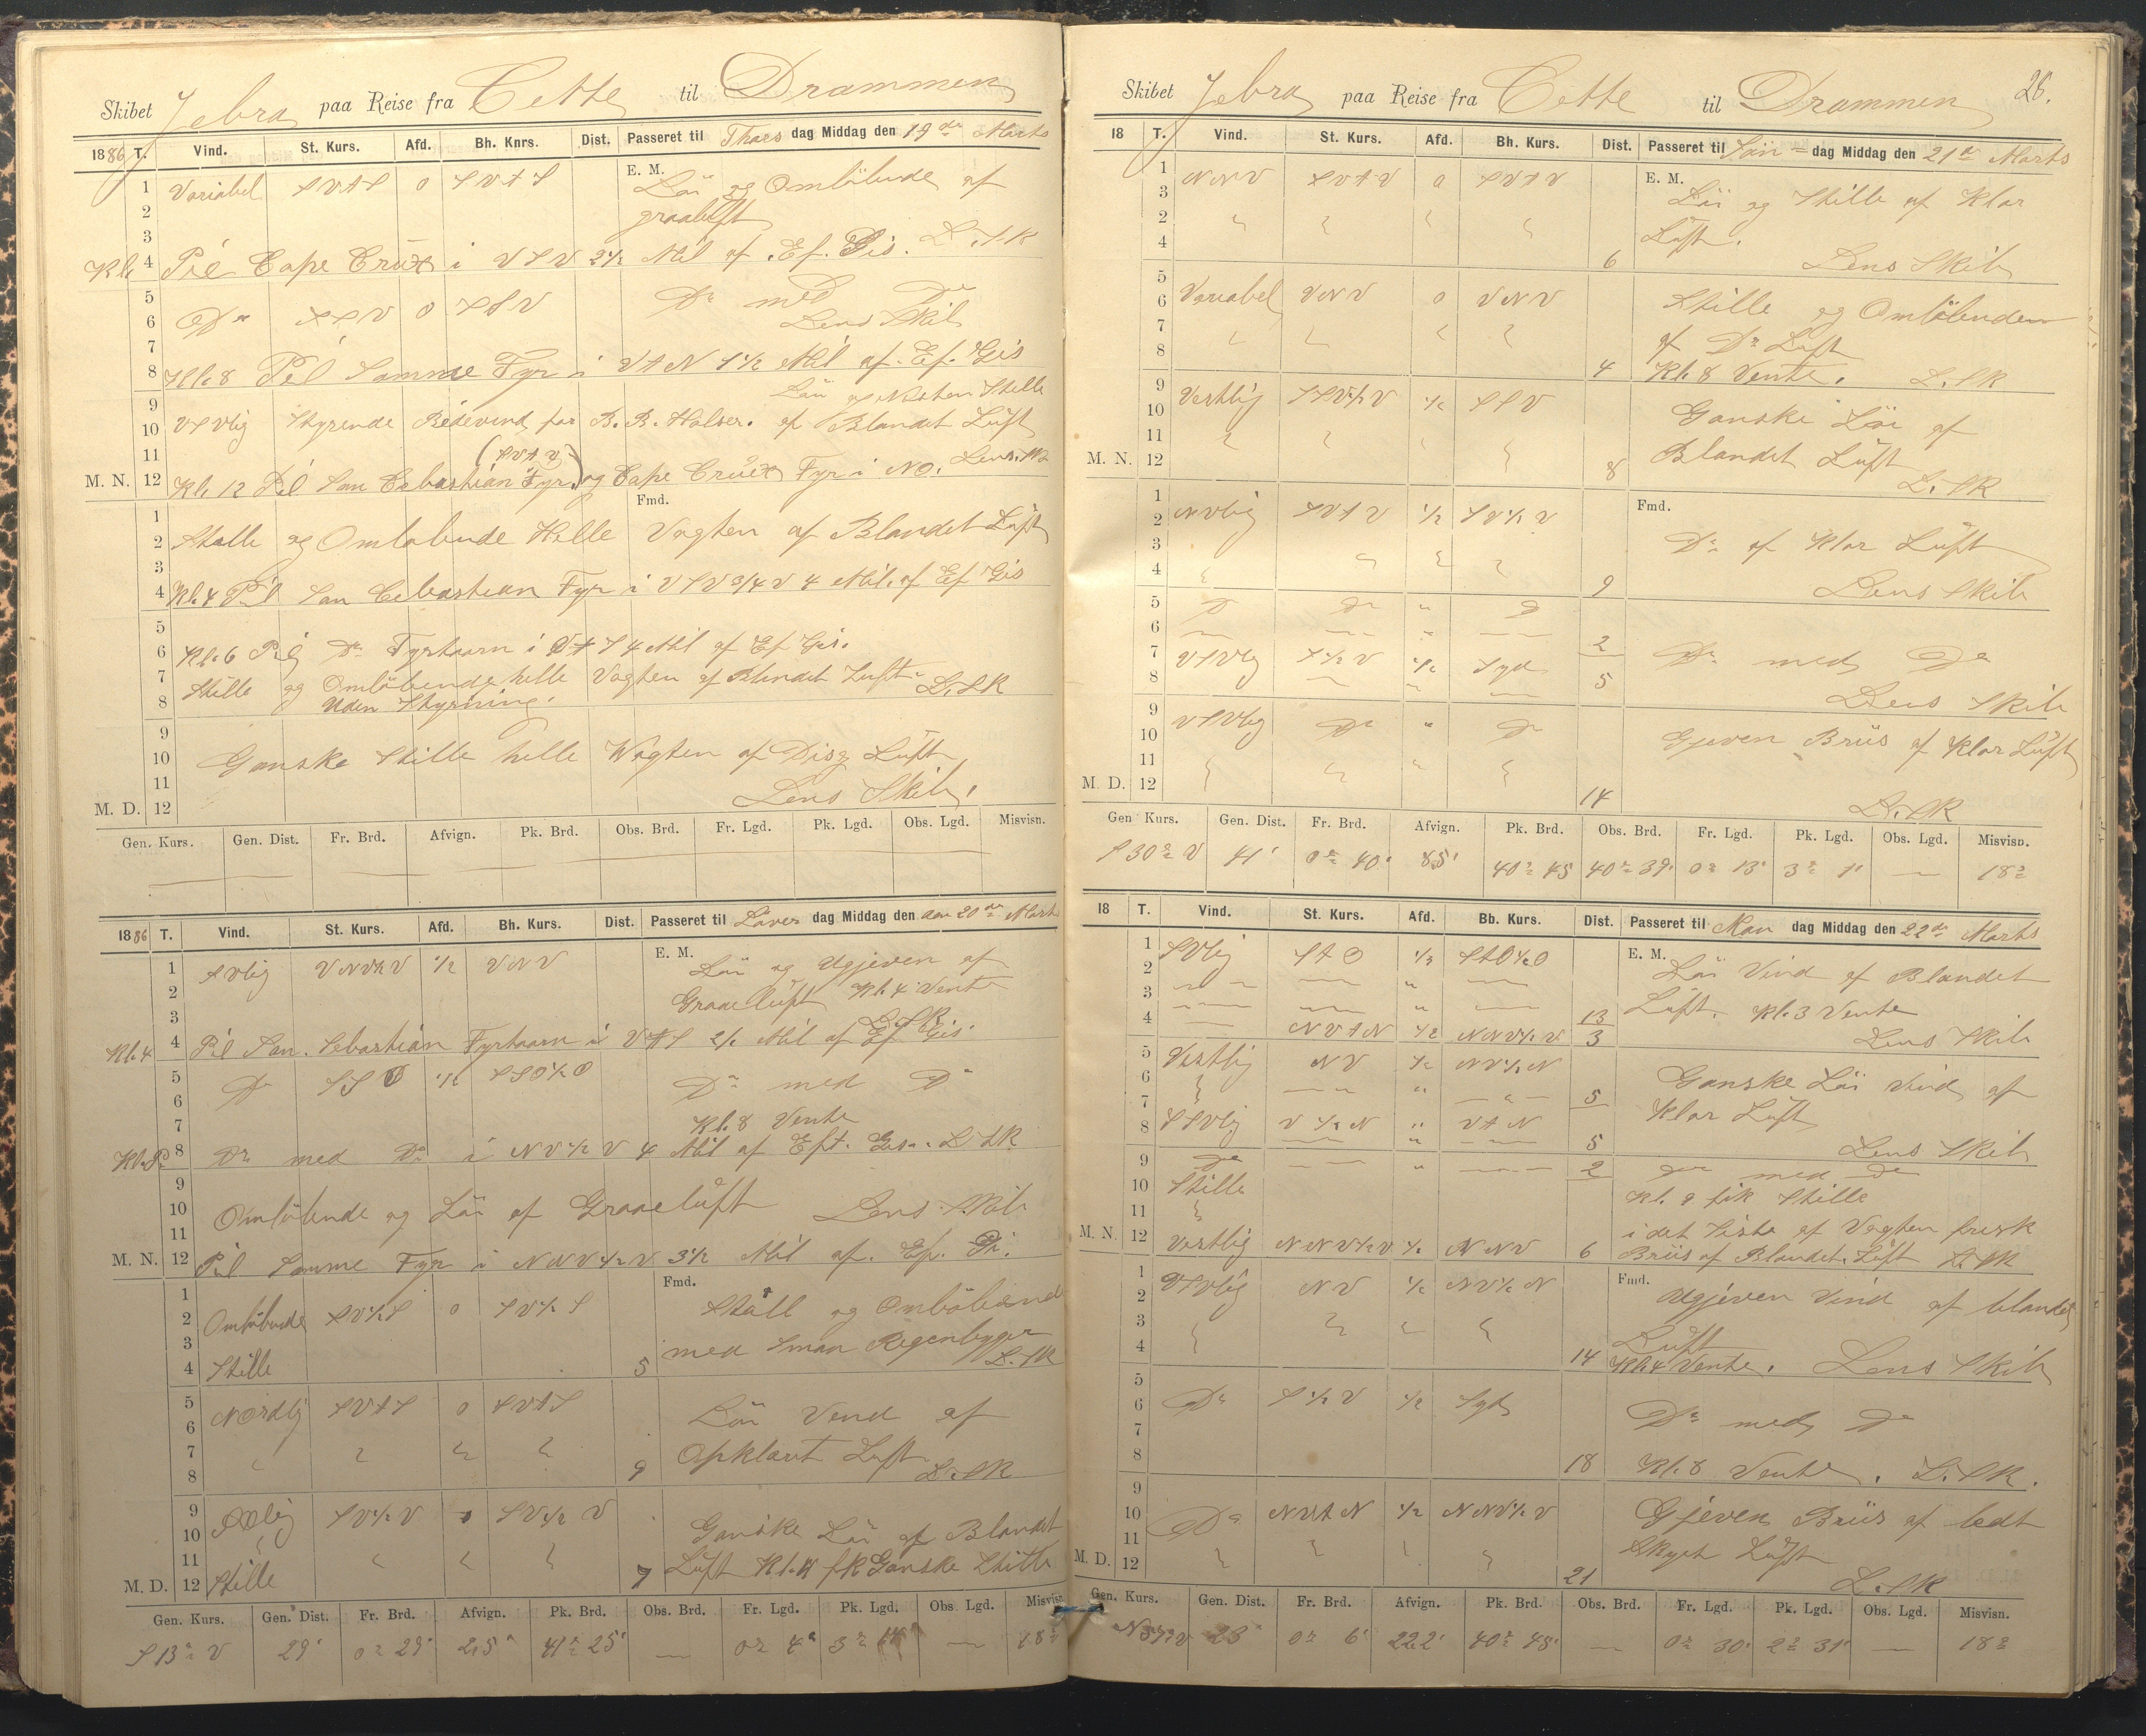 Skibet Zebra paa Reise fra Cette til Drammen
1886 T. Vind. St. Kurs. Afd. Bh. Knrs. Dist. Passeret til Thors dag Middag den 19de Marts
1 Variabel SVtS 0 SVtS E. M. Löi og Omlöbende af
2 graaluft
3 L. SK
Kl. 4 Peil Cape Creux i VSV 2 1/2 Mil af. Ef. Gis.
5 Do SSV 0 SSV Do med Do
6 Lens Skib
7
8 Kl. 8 Peil Samme Fyr i VtN 1 1/2 Mil af. Ef. Gis
9 Löi og Næsten Stille
10 VSVlig Styrende Bidevind for B. B. Halser. af Blandet Luft
11 (SVtV) Lens. SK
M. N. 12 Kl. 12 Peil San Cebastian Fyr. og Cape Creux Fyr i NO.
1 Fmd.
2 Stille og Omlöbende Helle Vagten af Blandet Luft
3
4 Kl. 4 Peil San Cebastian Fyr i VSV 3/4 V 4 Mil. af Ef Gis
5
6 Kl. 6 Peil Do Fyrtaarn i VtS 4 Mil af Ef Gis.
7 Stille og Omlöbende helle Vagten af Blandet Luft. L. SK
8 Uden Styrning.
9
10 Ganske Stille helle Vagten af Disig Luft
11 Lens Skib.
M. D. 12
Gen. Kurs. Gen. Dist. Fr. Brd. Afvign. Pk. Brd. Obs. Brd. Fr. Lgd. Pk. Lgd. Obs. Lgd. Misvisn.
1886 T. Vind. St. Kurs. Afd. Bh. Kurs. Dist. Passeret til Löver dag Middag den den 20de Marts
1 SVlig VNV1/2V 1/2 VNV E. M. Löi og Ugjeven af
2 Graaeluft Kl. 4 Vente
3 L. SK
Kl. 4 4 Peil San. Sebastian Fyrtaarn i VtS 2 1/2 Mil af Ef Gis.
5 Do SSO 1/2 SSO1/2O Do med Do
6
7 Kl. 8 Vente
Kl. 8 8 Do med Do i NV1/2V 4 Mil af Eft. Gis. L SK
9
10 Omlöbende og Löi af Graaeluft Lens. Skib
11
M. N. 12 Peil Samme Fyr i NNV1/2V 3 1/2 Mil af. Ef. Gi.
1 Fmd.
2 Omlöbende SV1/2S 0 SV1/2S Stille og Omlöbende
3 med Smaa Regenbyger
4 Stille 5 L. SK
5
6 Nordlig SVtS 0 SVtS Löi Vend af
7 Opklaret Luft
8 9 L. SK
9 SV1/2V 0 SV1/2V
10 Ganske Löi af Blandet
11 Luft Kl. 11 fik Ganske Stille
M. D. 12 Stille 7
Gen. Kurs. Gen. Dist. Fr. Brd. Afvign. Pk. Brd. Obs. Brd. Fr. Lgd. Pk. Lgd. Obs. Lgd. Misvisn.
S 13° V 29' 0° 29' 2,5' 41° 25' — 0° 4' 3° 14' — 18°
26.
Skibet Zebra paa Reise fra Cette til Drammen
18 T. Vind. St. Kurs. Afd. Bh. Kurs. Dist. Passeret til Sön= dag Middag den 21de Marts
1 NNV SVtV 0 SVtV E. M. Löi og Stille af Klar
3
2 Luft.
4 6 Lens Skib
5
6 Variabel VNV 0 VNV Stille og Omlöbende
7 af Do Luft
8 4 Kl. 8 Vente. L. SK
9 Vestlig SSV1/2V 1/2 SSV
10 Ganske Löi af
11 Blandet Luft
M. N. 12 8 L. SK
1 Fmd.
2 NVlig SVtV 1/2 SV1/2V
3 Do af Klar Luft
4 9 Lens Skib
5 Do Do " Do
6 2
7 VSVlig S1/2V 1/2 Syd Do med Do
8 5 Lens Skib
9 VSVlig Do " Do
10 Gjeven Briis af Klar Luft
11
M. D. 12 14 L. SK
Gen Kurs. Gen. Dist. Fr. Brd. Afvign. Pk. Brd. Obs. Brd. Fr. Lgd. Pk. Lgd. Obs. Lgd. Misvisn.
S 30° V 41' 0° 40' 85' 40° 45 40° 39' 0° 13' 3° 1' — 18°
18 T. Vind. St. Kurs. Afd. Bb. Kurs. Dist. Passeret til Man dag Middag den 22de Marts
1 SVlig StO 1/2 StO1/2O E. M. Löi Vind af Blandet
2
3 13 Luft. Kl. 3 Vente
4 NVtN 1/2 NNV1/2V 3 Lens Skib
5 Vestlig NV 1/2 NV1/2N
6 5 Ganske Löi Vind af
7 SSVlig V1/2N " VtN Klar Luft
8 5 Lens Skib
9 Do 2 Do med Do
10 Stille Kl. 9 fik Stille
11 i det Siste af Vagten frisk
M. N. 12 Vestlig NNV1/2V 1/2 NNV 6 Briis af Blandet. Luft L. SK
1 Fmd.
2 VSVlig NV 1/2 NV1/2N Ugjeven Vind af blandet
3 Luft
4 14 Kl. 4 Vente. Lens Skib
5
6 Do S1/2V 1/2 Syd Do med Do
7
8 18 Kl. 8 Vente. L. SK.
9
10 Do NVtN 1/2 NNV1/2V Gjeven Briis af ledt
11 Skyet Luft
M. D. 12 21 L. SK
Gen. Kurs. Gen. Dist. Fr. Brd. Afvign. Pk. Brd. Obs. Brd. Fr. Lgd. Pk. Lgd. Obs. Lgd. Misvisn.
23' 0° 6' 222' 40° 45' — 0° 30' 2° 31' — 18°